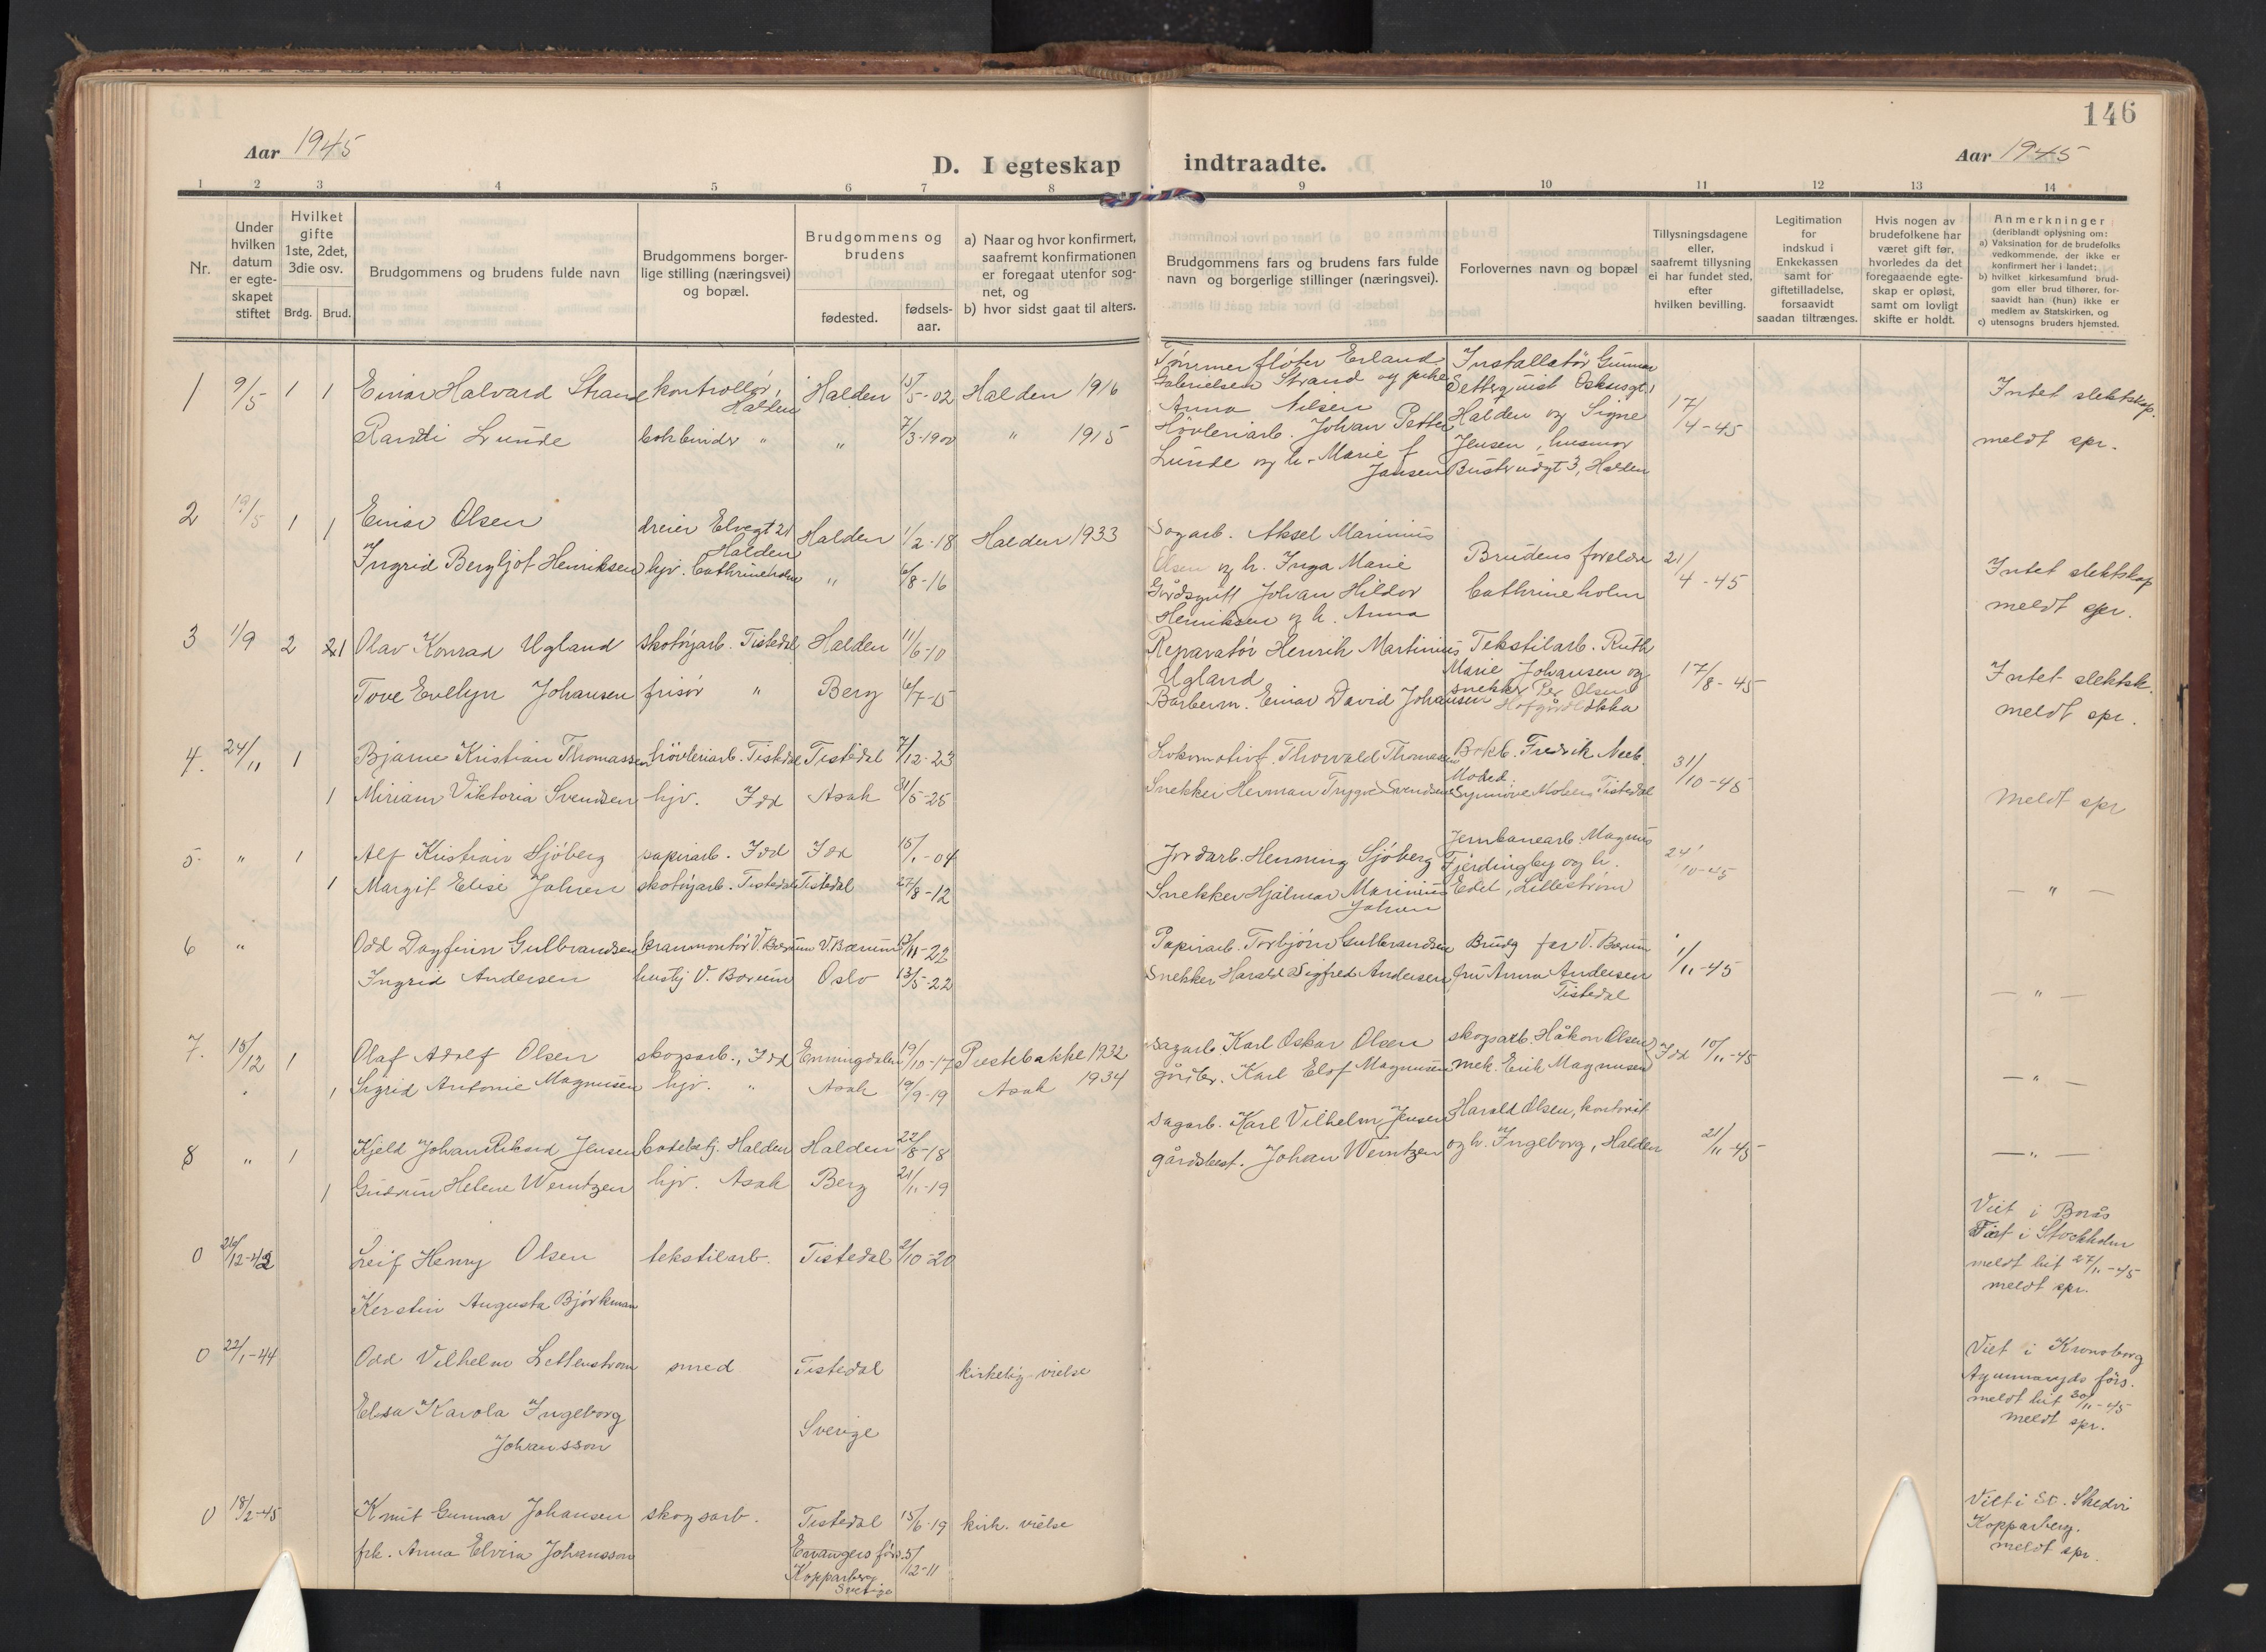 146
Aar 1945
D. I egteskap indtraadte.
Aar 1945
1 2 3 4 5 6 7 8 9 10 11 12 13 14
Nr.
Under hvilken datum er egte-skapet stiftet
Hvilket gifte 1ste, 2det, 3die osv.
Brdg. Brud.
Brudgommens og brudens fulde navn
Brudgommens borger-lige stilling (næringsvei) og bopæl.
Brudgommens og brudens
fødested.
fødsels-aar.
a) Naar og hvor konfirmert, saafremt konfirmationen er foregaat utenfor sog-net, og
b) hvor sidst gaat til alters.
Brudgommens fars og brudens fars fulde navn og borgerlige stillinger (næringsvei).
Forlovernes navn og bopæl
Tillysningsdagene eller, saafremt tillysning ei har fundet sted, efter hvilken bevilling.
Legitimation for indskud i Enkekassen samt for giftetilladelse, forsaavidt saadan tiltrænges.
Hvis nogen av brudefolkene har været gift før, hvorledes da det foregaaende egte-skap er opløst, samt om lovligt skifte er holdt.
Anmerkninger (deriblandt oplysning om:
a) Vaksination for de brudefolks vedkommende, der ikke er konfirmert her i landet;
b) hvilket kirkesamfund brud-gom eller brud tilhører, for-saavidt han (hun) ikke er medlem av Statskirken, og
c) utensogns bruders hjemsted.
1 9/5 1 1 Einar Halvard Strand kontrollør, Halden Halden 15/5-02 Halden 1916
Randi Lunde bokbinder " " 7/3-1900 " 1915
Tømmerfløter Erland
Gabrielsen Strand og
Anna Nilsen
Høvleriarb. Johan Petter
Lunde og h. Marie f
Jansen
Installatør Gunnar
Setterquist Oskusgt 1
Halden og Signe
Jensen, husmor
Busterudgt 3, Halden
17/4-45
Intet slektskap.
meldt spr.
2 19/5 1 1 Einar Olsen dreier Elvegt 21 Halden Halden 1/2-18 Halden 1933
Ingrid Bergljot Henriksen hjv. Cathrineholm " 6/8-16
Sagarb. Aksel Marinius
Olsen og h. Inga Marie
Gårdsgutt Johan Hildor
Henriksen og h. Anna
Brudens foreldre
Cathrineholm
21/4-45
Intet slektskap
meldt spr.
3 1/9 2 1 Olav Konrad Ugland skotøyarb. Tistedal Halden 11/6-10
Tove Evelyn Johansen frisør " Berg 6/7-15
Reparatør Henrik Martinius
Ugland
Barberm. Einar David Johansen
Tekstilarb. Ruth
Marie Johansen og
snekker Per Olsen
Hofgårdløkka
17/8-45
Intet slektsk.
meldt spr.
4. 24/11 1 Bjarne Kristian Thomassen høvleriarb. Tistedal Tistedal 7/12-23
1 Miriam Viktoria Svendsen hjv. Idd Asak 31/5-25
Lokomotivf. Thorvald Thomassen
Snekker Herman Trygve Svendsen
Bokb. Fredrik
Synnøve Tistedal
31/10-45
Meldt spr
5. " 1 Alf Kristian Sjöberg papirarb. Idd Idd 15/1-04
1 Margit Elise Jahren skotøyarb. Tistedal Tistedal 27/8-12
Jordarb. Henning Sjöberg
Snekker Hjalmar Marinius
Jahren
Jernbanearb. Magnus
Fjerdingby og h.
Edel, Lillestrøm
24/10-45
— " —
6 " Odd Dagfinn Gulbrandsen kranmontør V. Bærum V. Bærum 13/11-22
Ingrid Andersen hustj V. Bærum Oslo 13/5-22
Papirarb. Torbjørn Gulbrandsen
Snekker Harald Sigfred Andersen
Brudg far V. Bærum
fru Anna Andersen
Tistedal
1/11-45
— " —
7. 15/12 1 Olaf Adolf Olsen skogsarb., Idd Enningdalen 19/10-17 Prestebakke 1932
1 Sigrid Antonie Magnussen hjv. " Asak 19/9-19 Asak 1934
sagarb. Karl Oskar Olsen
gårdbr. Karl Elof Magnussen
skogsarb. Håkon Olsen, Idd
mek. Erik Magnussen
10/11-45
— " —
8 " 1 Kjeld Johan Rikard Jensen badebetj. Halden Halden 22/8-18
1 Gudrun Helene Werntzen hjv. Asak Berg 21/11-19
Sagarb. Karl Vilhelm Jensen
gårdsbest. Johan Werntzen
Harald Olsen, kontorist
og h. Ingeborg, Halden
21/11-45
— " —
0 26/12-42 Leif Henry Olsen tekstilarb. Tistedal 2/10-20
Kerstin Augusta Björkman
Viet i Borås
i Stockholm
meldt hit 27/11-45
meldt spr.
0 22/1-44 Odd Vilhelm Lettenstrøm smed Tistedal kirkelig vielse
Elsa Karola Ingeborg
Johansson Sverige
Viet i Kronoberg
förs.
meldt hit 30/11-45
meldt spr.
0 18/2-45 Knut Gunnar Johansen skogsarb. Tistedal 15/6-19 kirk. vielse
frk. Anna Elvira Johansson förs. 5/12-11
Kopparberg
Sverige
Viet i St. Skedvi
Kopparberg.
meldt spr.